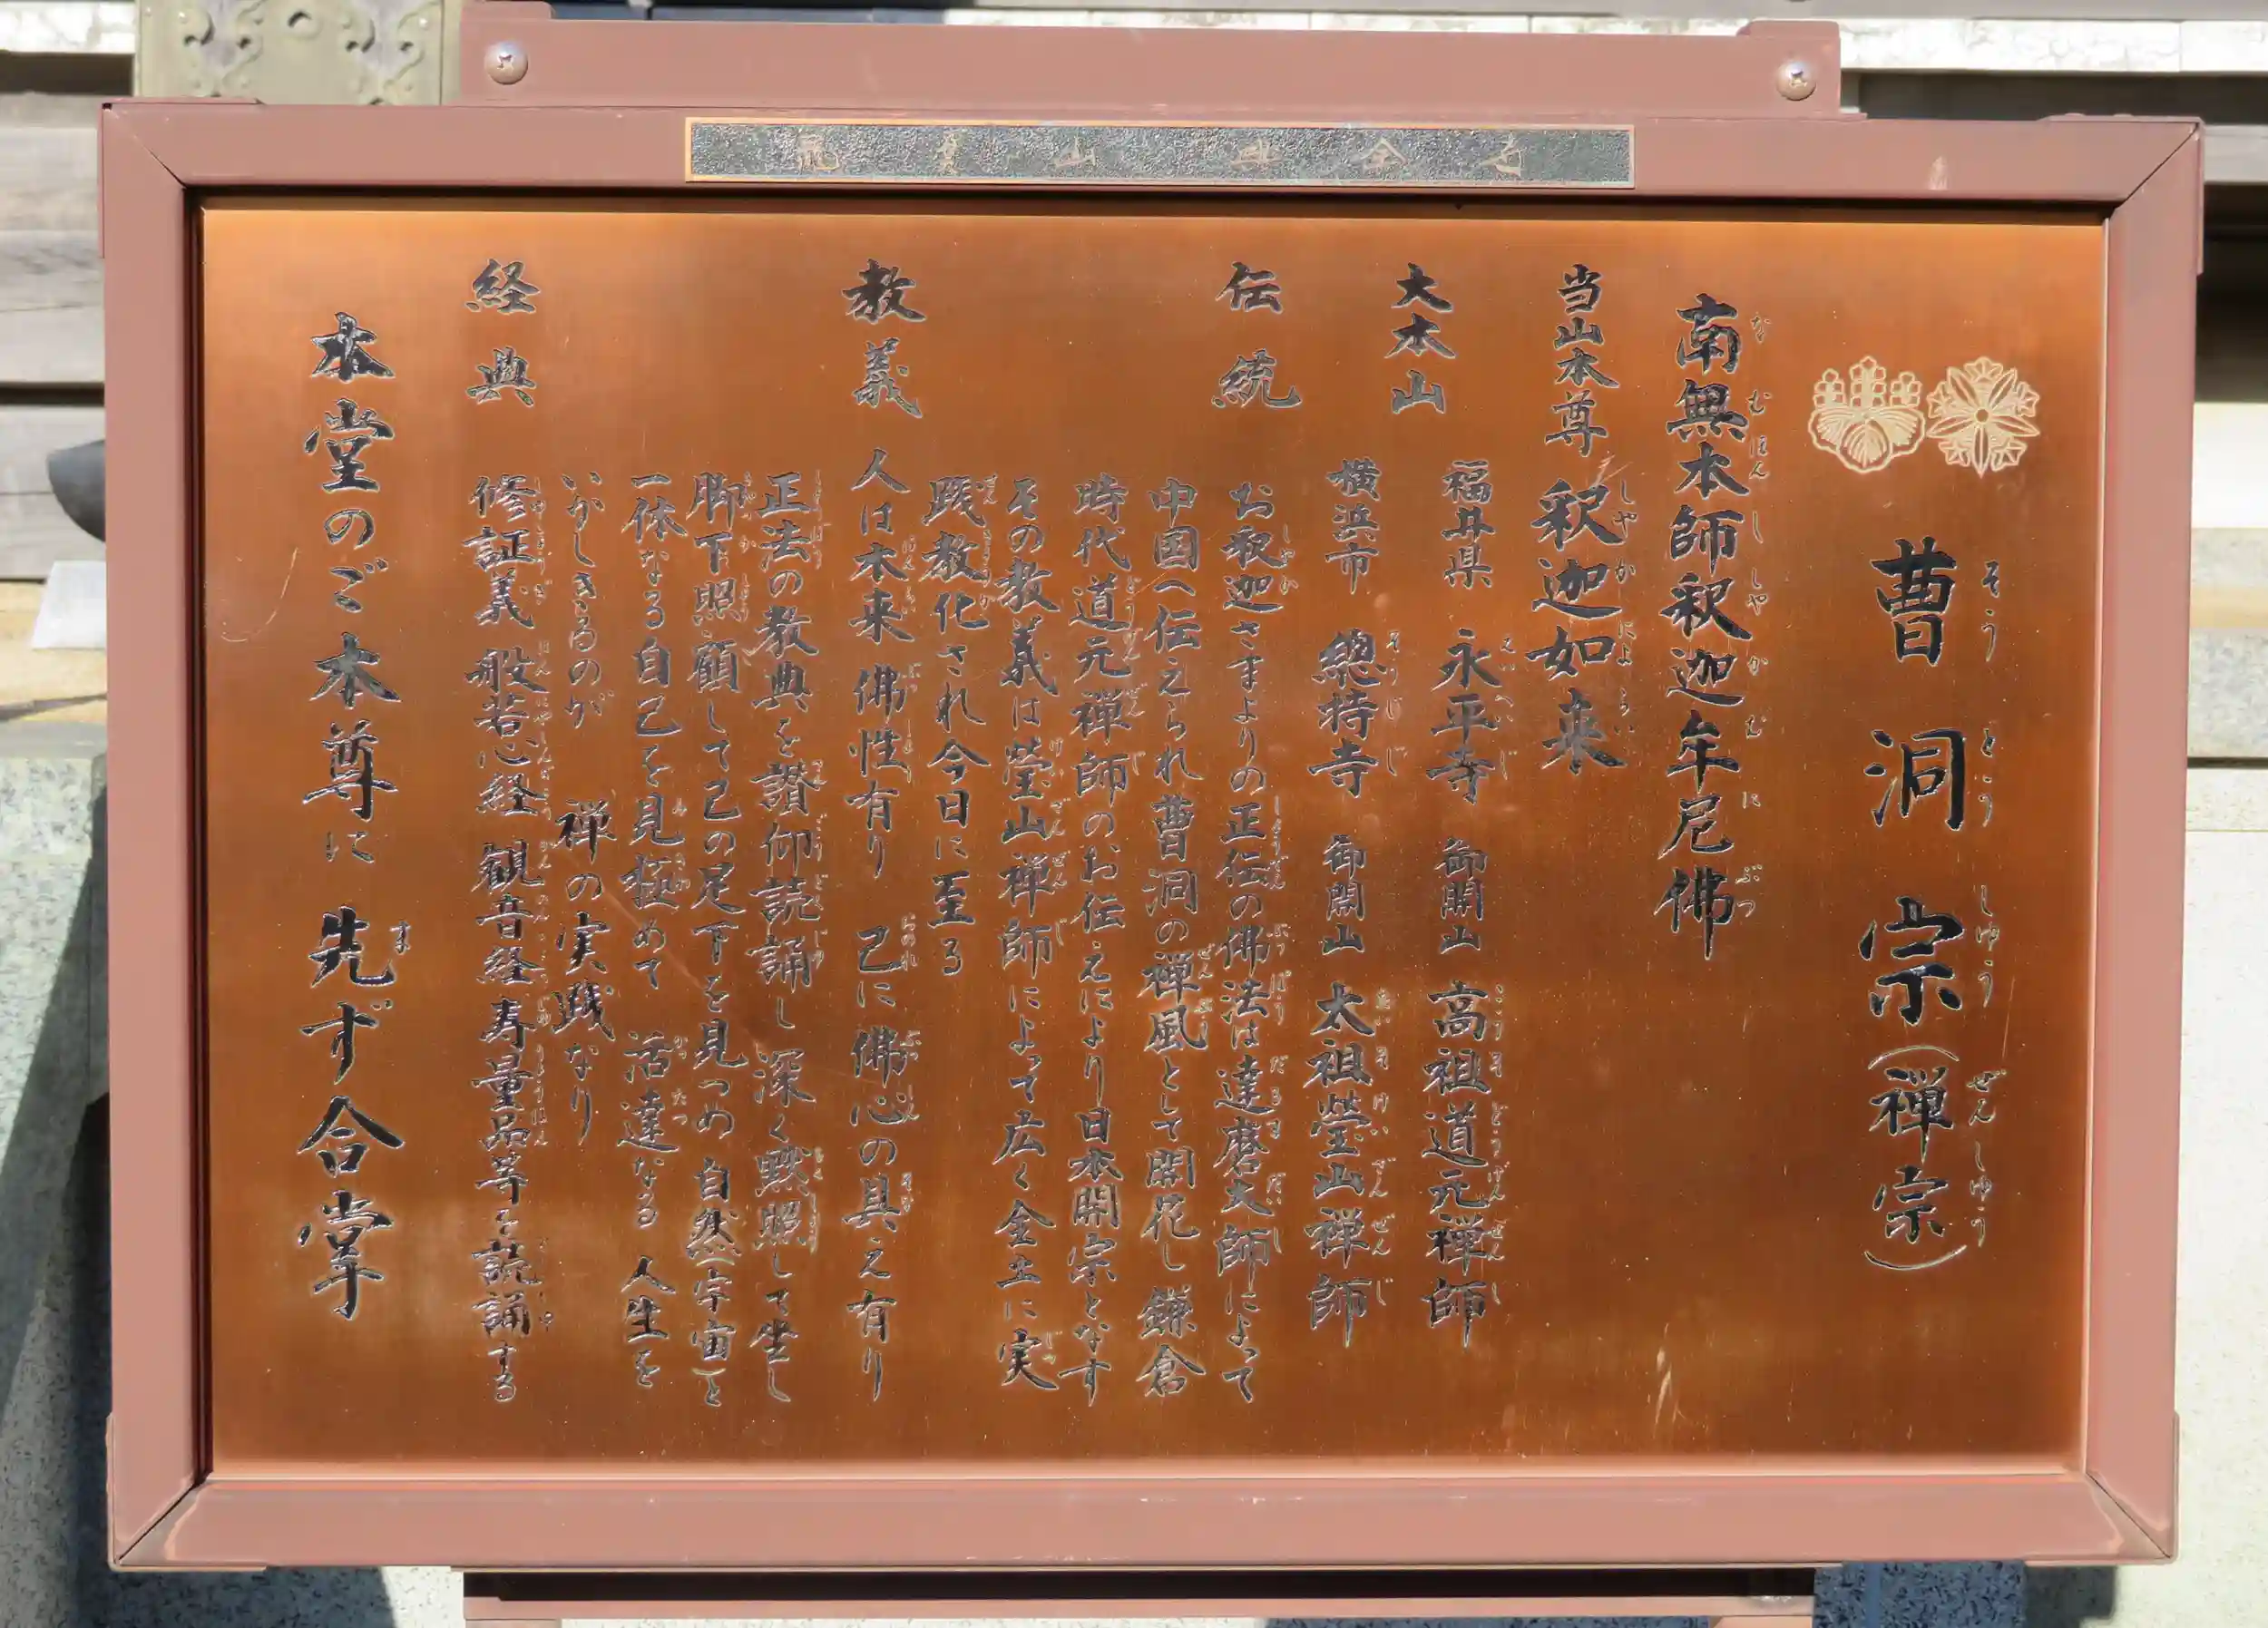 曹洞宗(禅宗)
南無本師釈迦牟尼佛
当山本尊 釈迦如来
大本山 福井県 永平寺 御開山 高祖道元禅師
横浜市 總持寺 御開山 太祖瑩山禅師
伝統 お釈迦さまよりの正伝の佛法は達磨大師によって
中国へ伝えられ曹洞の禅風として開花し鎌倉
時代道元禅師のお伝えにより日本開宗となす
その教義は瑩山禅師によって広く全土に実
践教化され今日に至る
教義 人は本来佛性有り 己に佛心の具え有り
正法の教典を讃仰読誦し深く黙照して坐し
脚下照顧して己の足下を見つめ 自然(宇宙)と
一体なる自己を見極めて 活達なる 人生を
いかしきるのが 禅の実践なり
経典 修証義 般若心経 観音経寿量品等を読誦する
本堂のご本尊に 先ず合掌